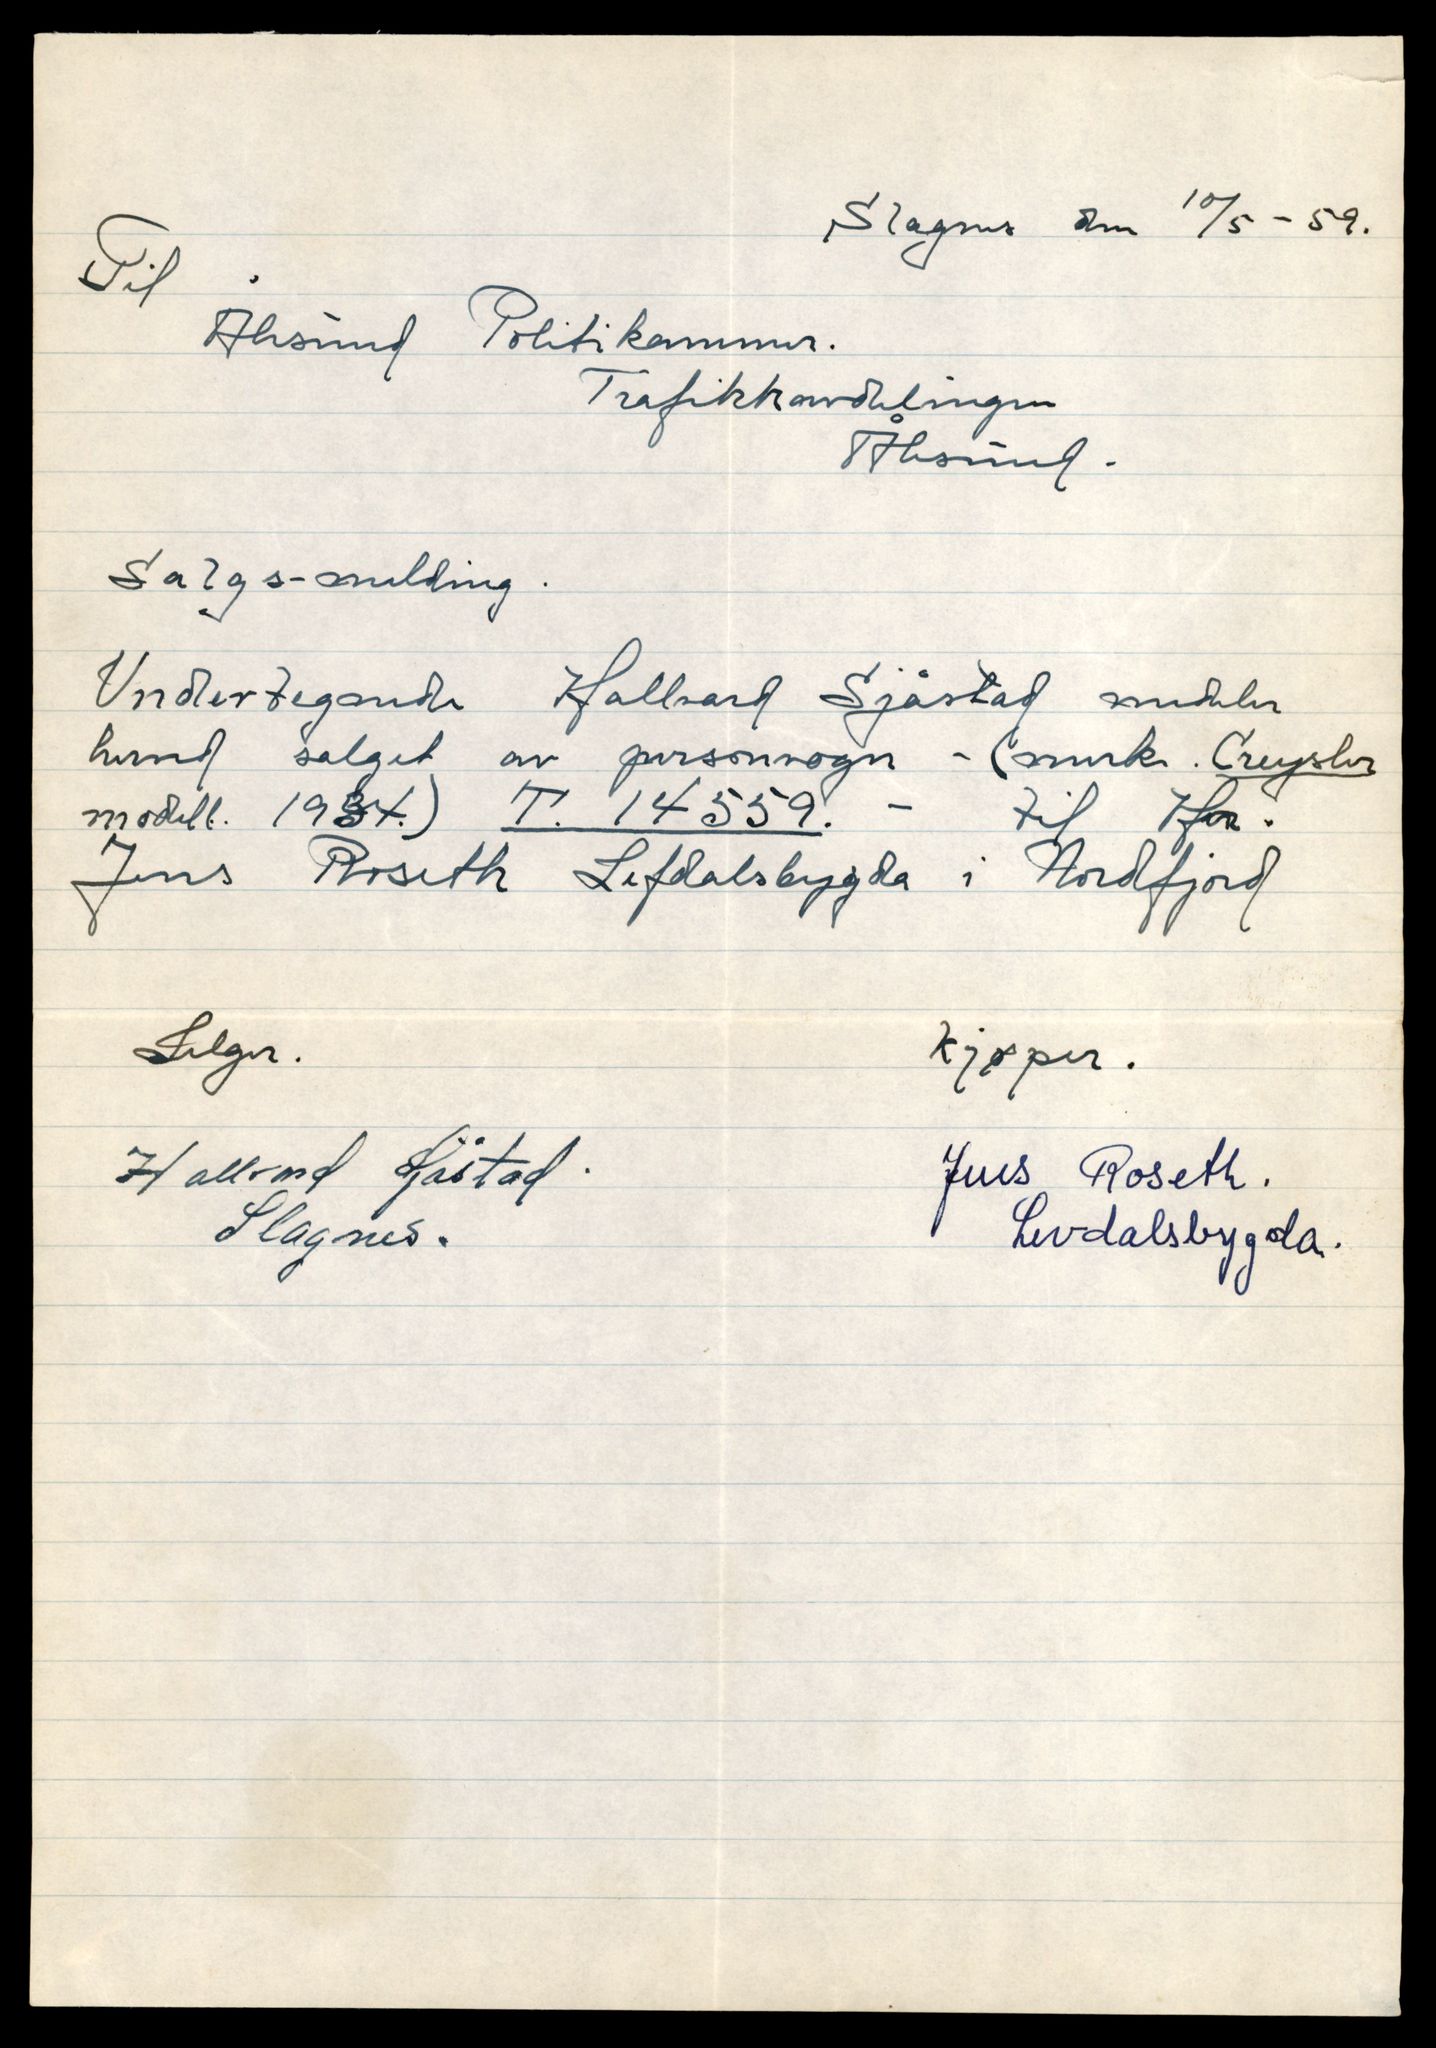 Slagnes den 10/5 - 59.
Til
Ålesund Politikammer.
Trafikkavdelingen
Ålesund.
Salgs-melding.
Undertegnede Hallvard Sjåstad meddeler
herved salget av personvogn - (merke. Creysler
modell. 1934.) T. 14559. - til Herr.
Jens Roseth Lefdalsbygda i Nordfjord
Selger.
Kjøper.
Hallvard Sjåstad.
Jens Roseth.
Slagnes.
Levdalsbygda.